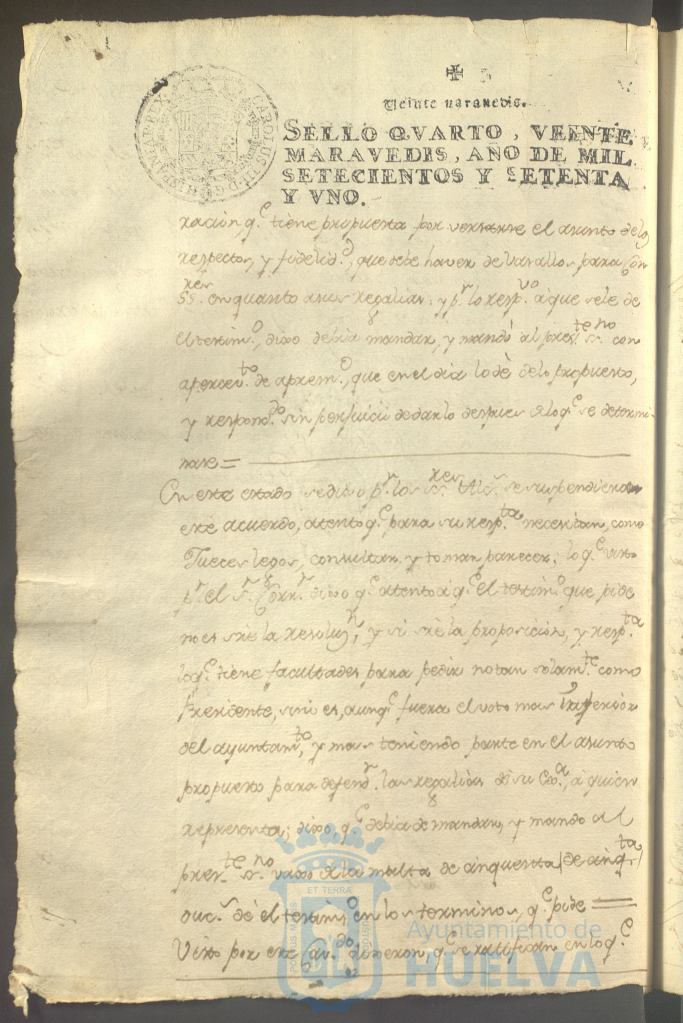 Veinte maravedis.
SELLO QVARTO, VEINTE
MARAVEDIS, AÑO DE MIL
SETECIENTOS Y SETENTA
Y VNO.
CAROLUS III D G HISPANIAR REX
racion q.e tiene propuesta por versarse el asunto de los
respectos, y fidelid.d, que debe haver de vasallos para con
ss.res en quanto a sus regalias: y p.r lo resp.vo a que se le de
el testim.o, dixo debia mandar, y mando al pres.te ss.no con
apercev.to de aprem.o, que en el dia lo dè de lo propuesto,
y respond.do sin perjuicio de darlo despues de lo q.e se determi-
nare=
En este estado se dixo p.r los ss.res Alc.s se suspendiera
este acuerdo, atento q.e para su resp.ta necesitan, como
Jueces legos, consultar y tomar parecer; lo q.e visto
p.r el s.r Corr.r dixo q.e atento à q.e el testim.o que pide
no es sre la resoluz.n, y si sre la proposicion, y resp.ta
lo q.e tiene facultades para pedir no tan solam.te como
Presidente, sino es, aunq.e fuera el voto mas Inferior
del ayuntam.to, y mas teniendo parte en el asunto
propuesto para defend.r las regalias de su Exa., a quien
representa; dixo, q.e debia de mandar, y mando al
pres.te ss.no vajo de la multa de cinquenta
duc.s dè el testim.o en los terminos, q.e pide=
Visto por este Cav.do dixeron, q.e se ratifican en lo q.e
Ayuntamiento de
HUELVA